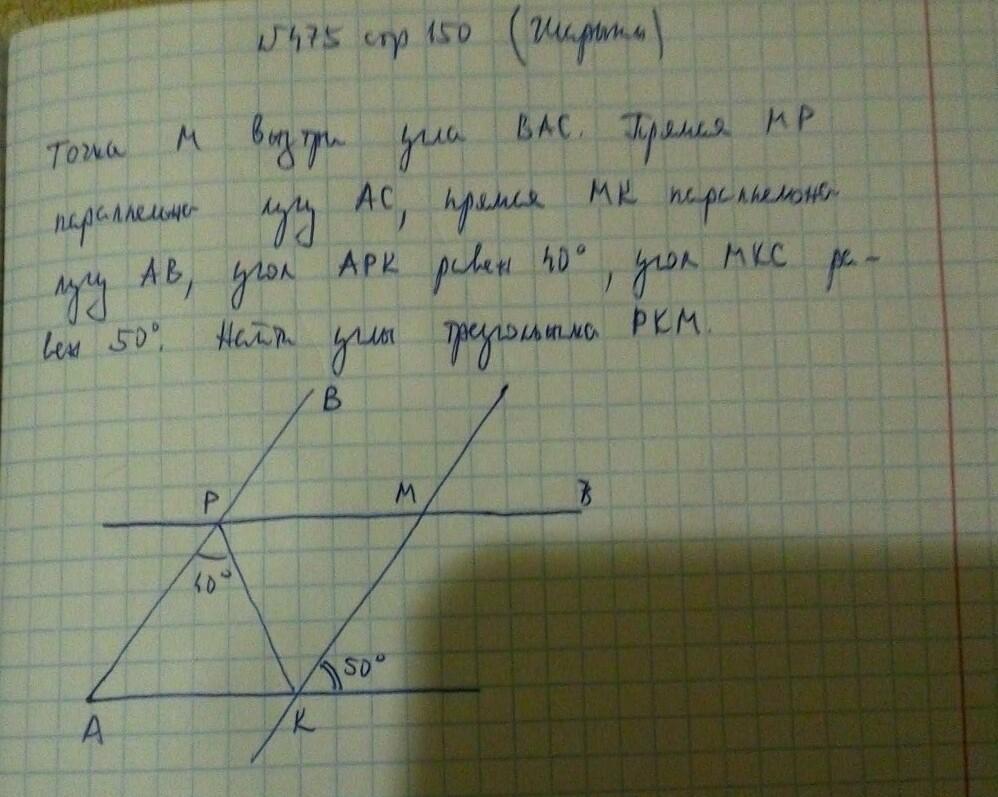 №475 стр 150 (Ширыни)
Точка М внутри угла ВАС. Прямая МР
параллельна лучу АС, прямая МК параллельна
лучу АВ, угол АРК равен 40°, угол МКС ра-
вен 50°. Найти углы треугольника РКМ.
В
Р М
40°
50°
А К